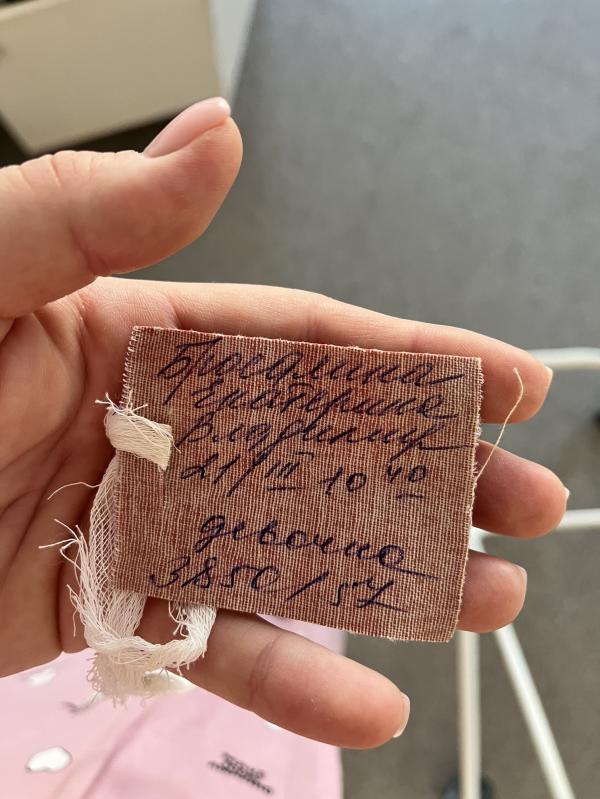 Бросалина
Екатерина
Владимир
21/III 10 40
девочка
3850/57